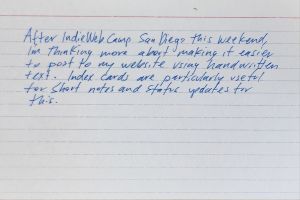 After IndieWebCamp San Diego this weekend,
I'm thinking more about making it easier
to post to my website using handwritten
text. Index cards are particularly useful
for short notes and status updates for
this.